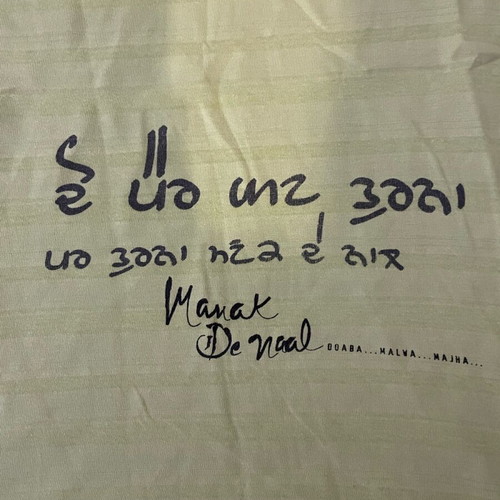 ਦੋ ਪੈਰ ਘਟ ਤੁਰਨਾ
ਪਰ ਤੁਰਨਾ ਦੇ ਨਾਲ
Manak
De Naal DOABA...MALWA...MAJHA...